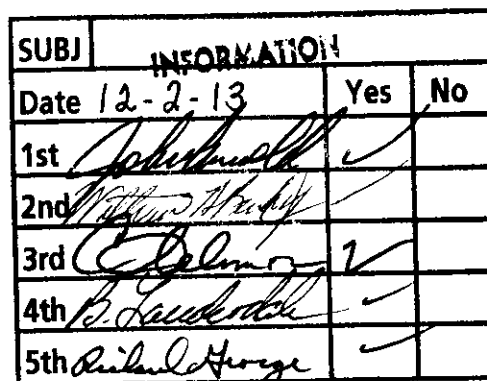 SUBJ INFORMATION
Date 12-2-13 Yes No
1st ✓
2nd ✓
3rd ✓
4th B. Lauderdale ✓
5th Richard George ✓